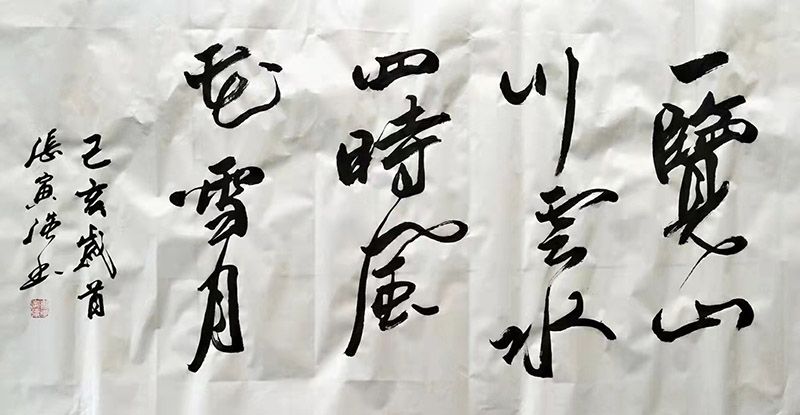 一覽山
川雲水
四時風
花雪月
己亥歲首
張寅浩书